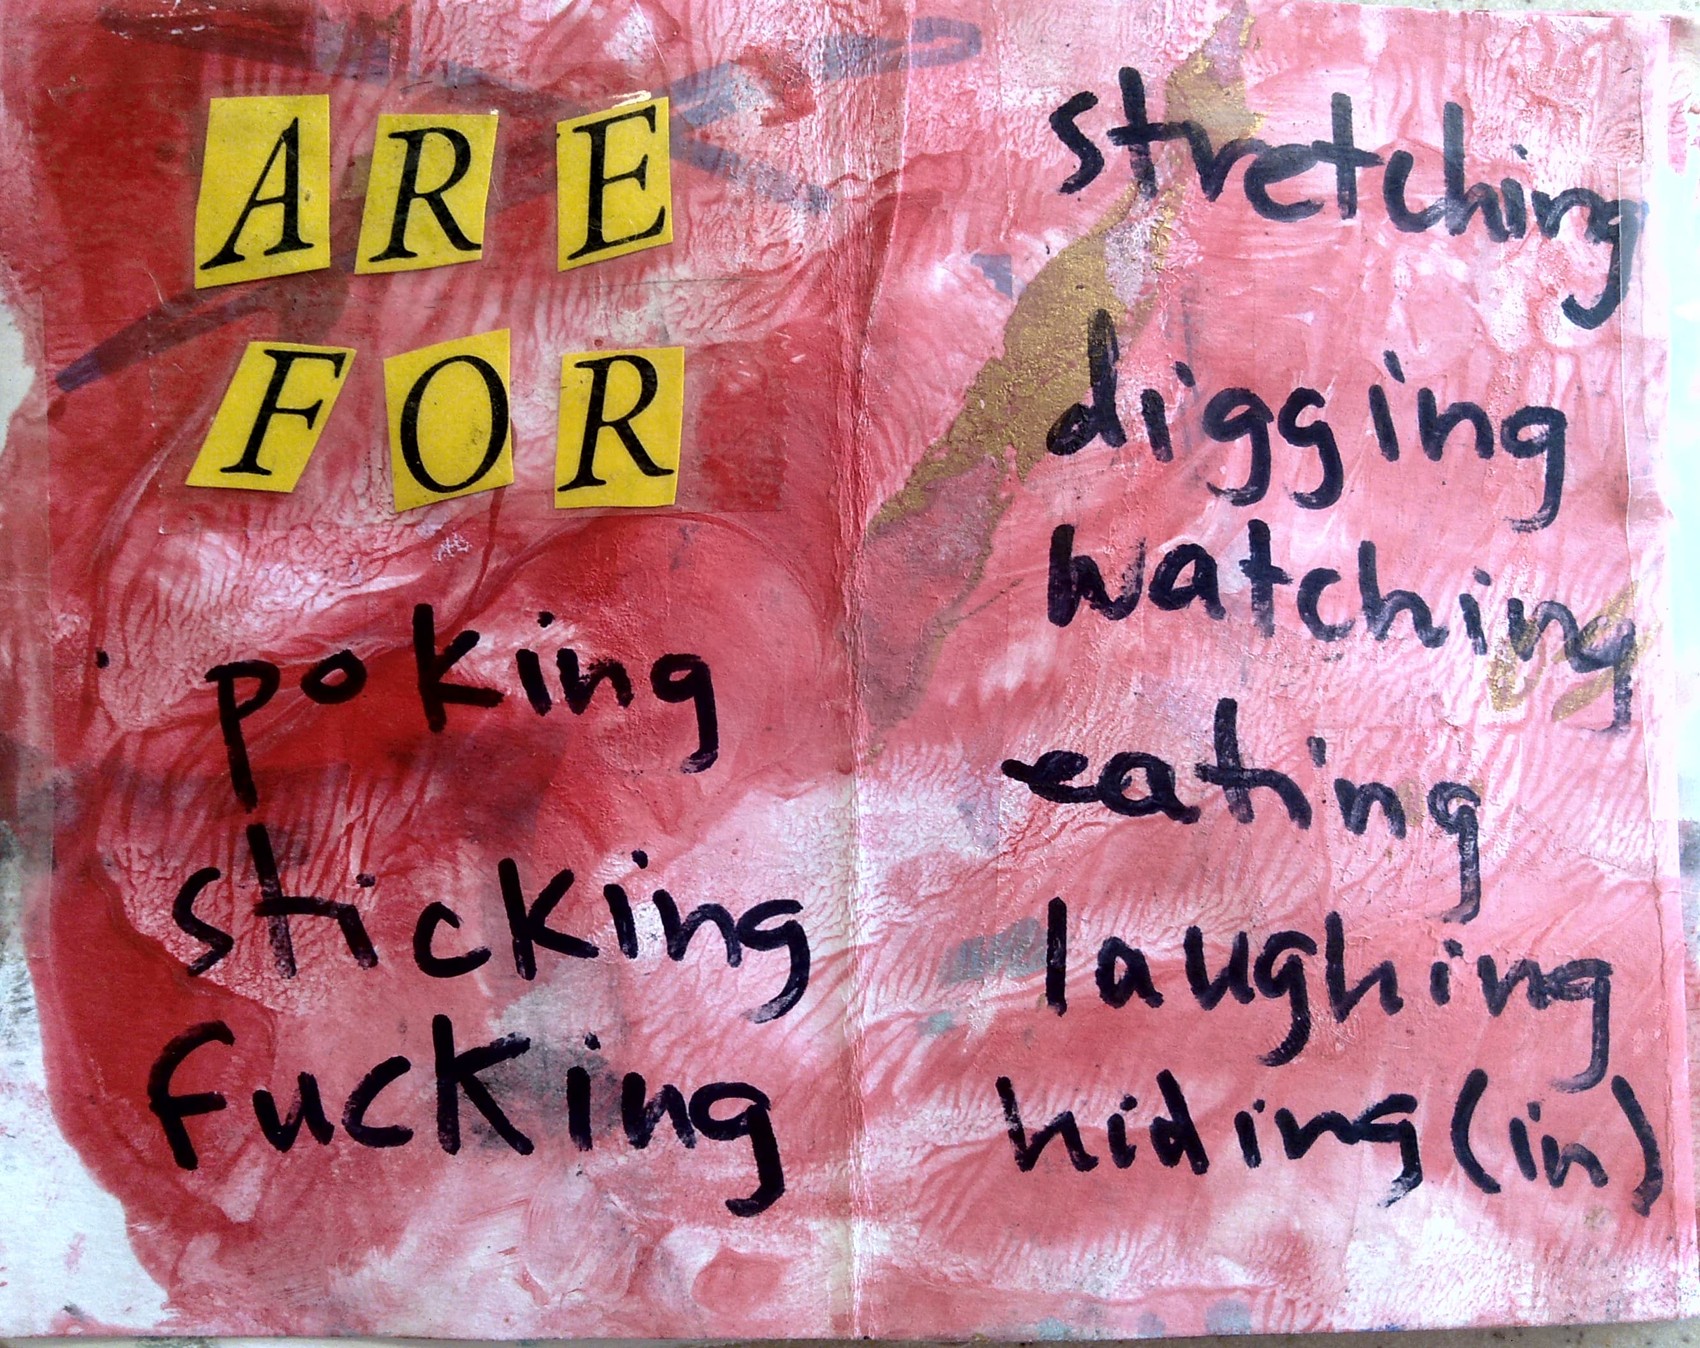 ARE
FOR
poking
sticking
fucking
stretching
digging
watching
eating
laughing
hiding (in)